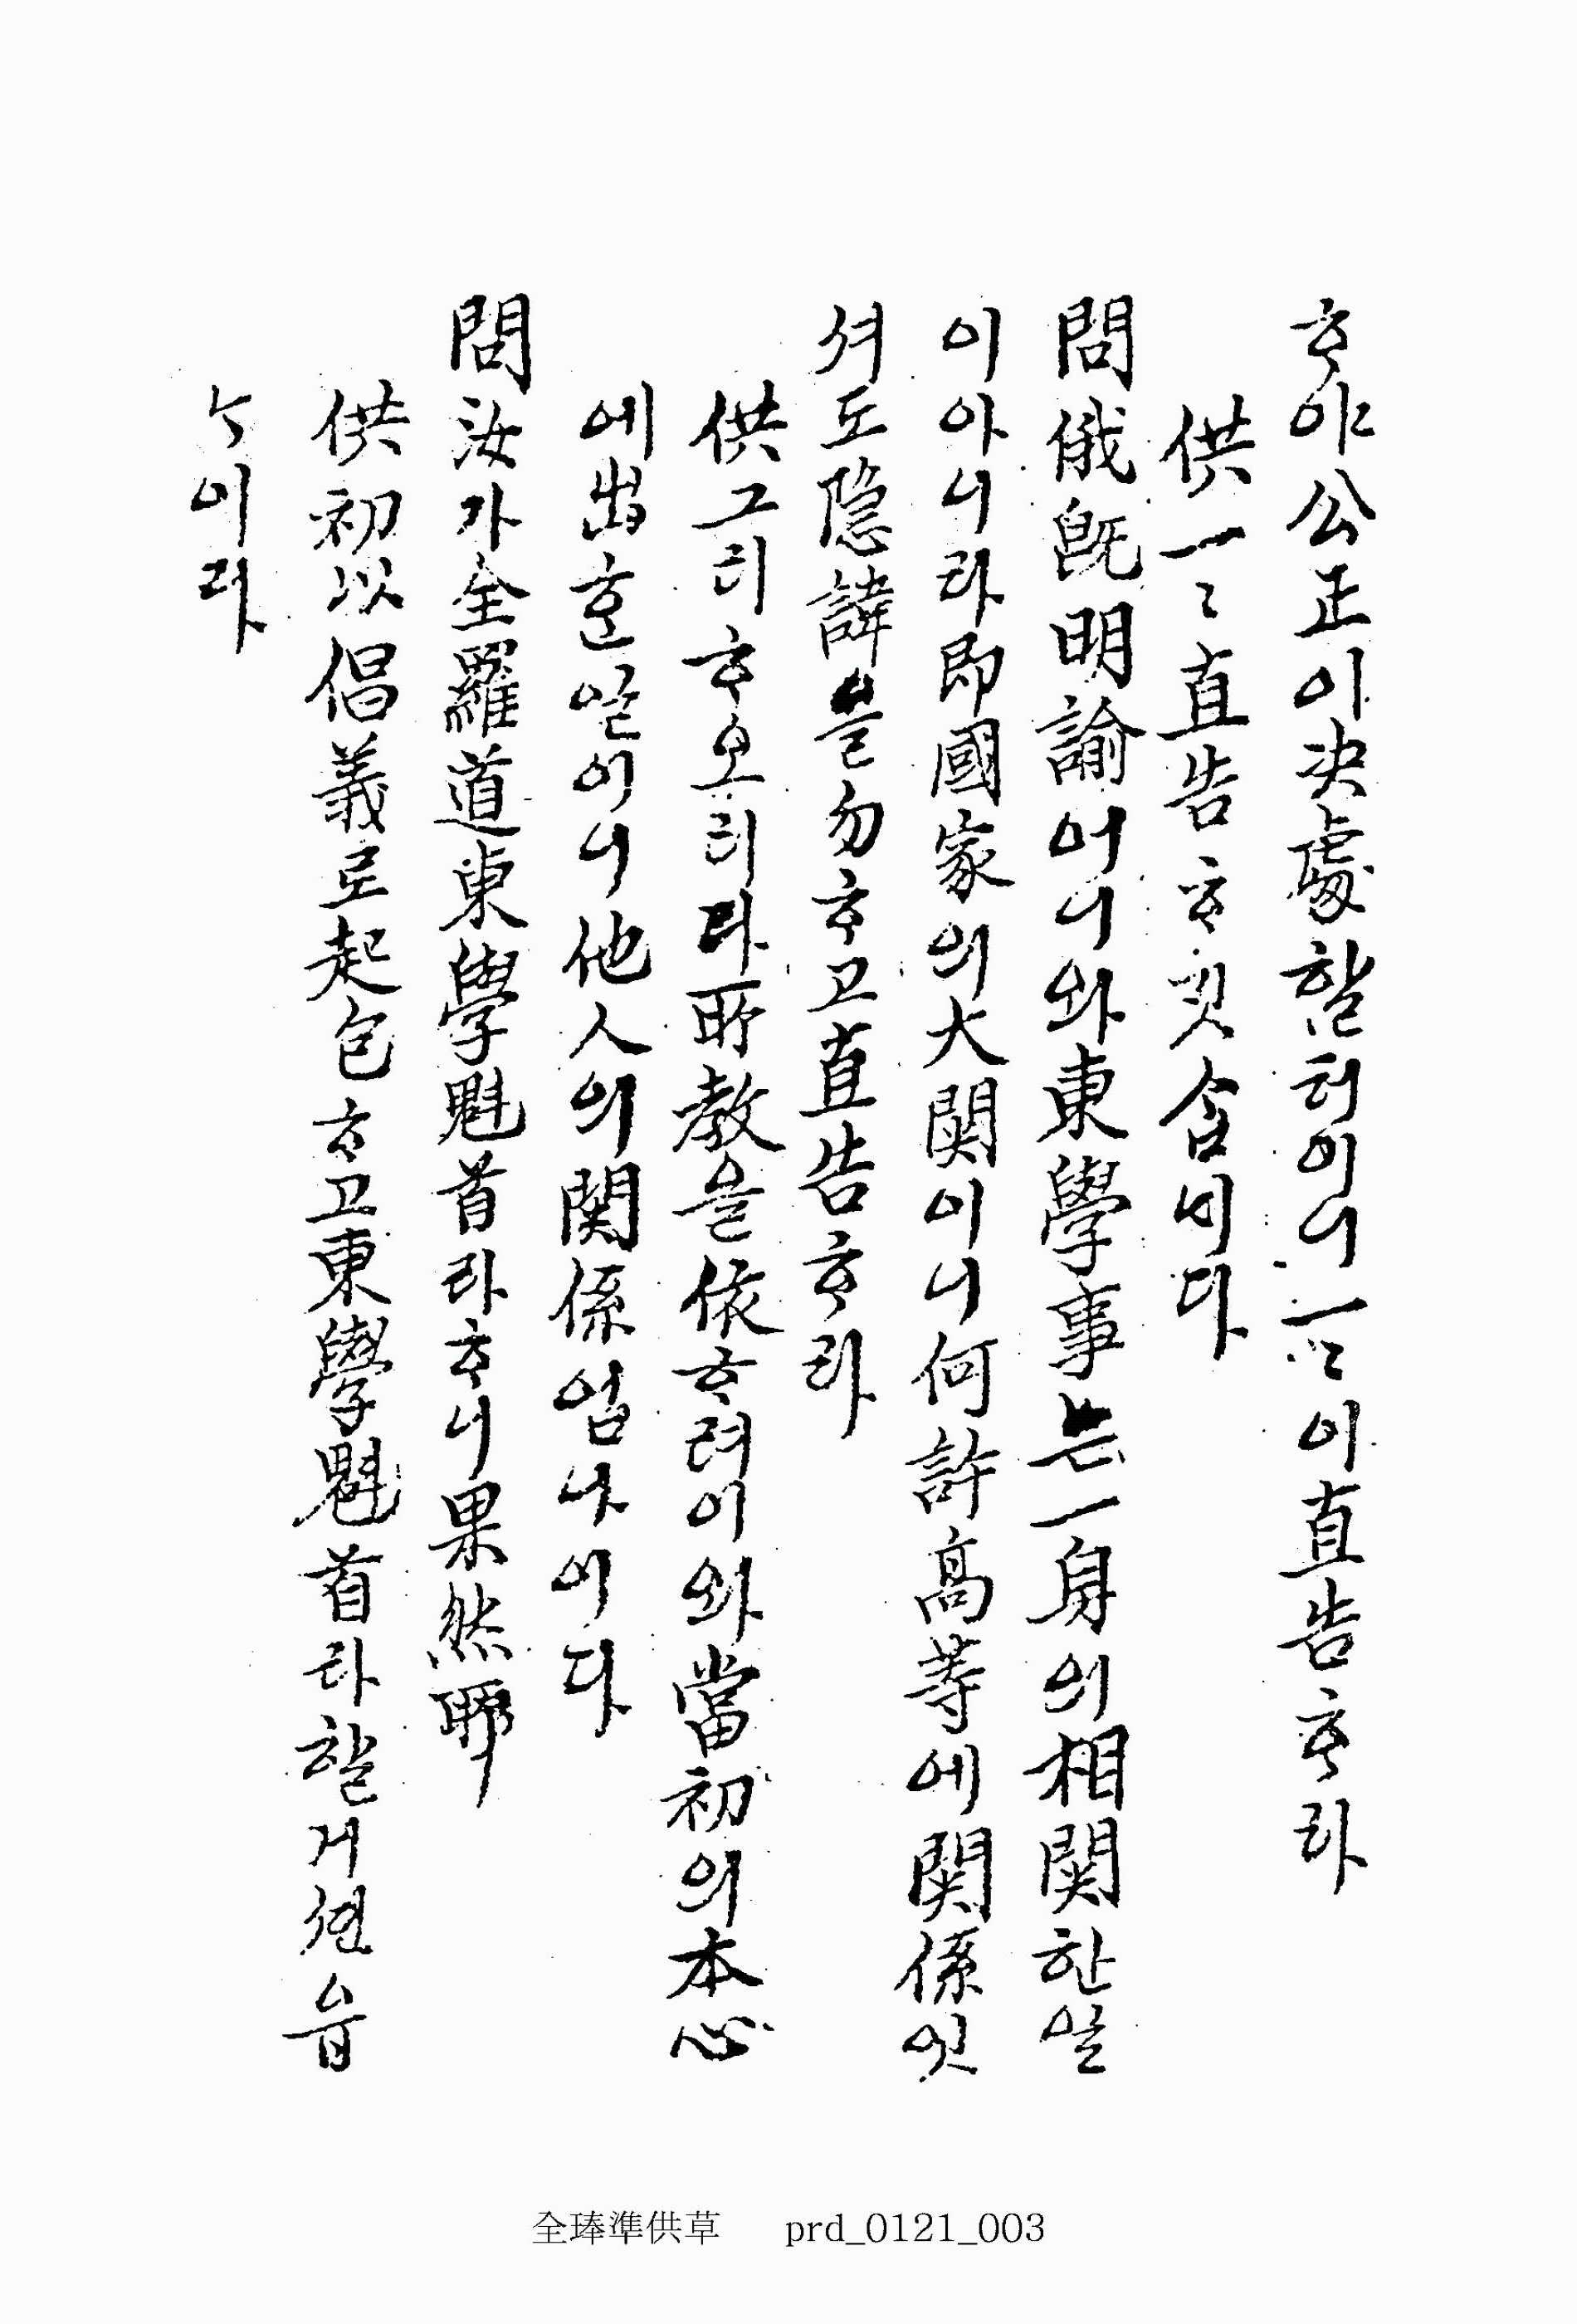 ᄒᆞ야公正이決處할터이니一〻이直告ᄒᆞ라
供一〻直告ᄒᆞ깃슴ᄂᆡ다
問俄旣明諭어니와東學事는一身의相関한일
이아니라即國家의大関이니何許高等에関係잇
셔도隐諱을勿ᄒᆞ고直告ᄒᆞ라
供그리ᄒᆞ오리라所教을依ᄒᆞ려이와當初의本心
에出ᄒᆞᆫ일이니他人의関係업나이다
問汝가全羅道東學魁首라ᄒᆞ니果然耶
供初以倡義로起包ᄒᆞ고東學魁首라할거션音
ᄂᆞ이라
全琫準供草 prd_0121_003